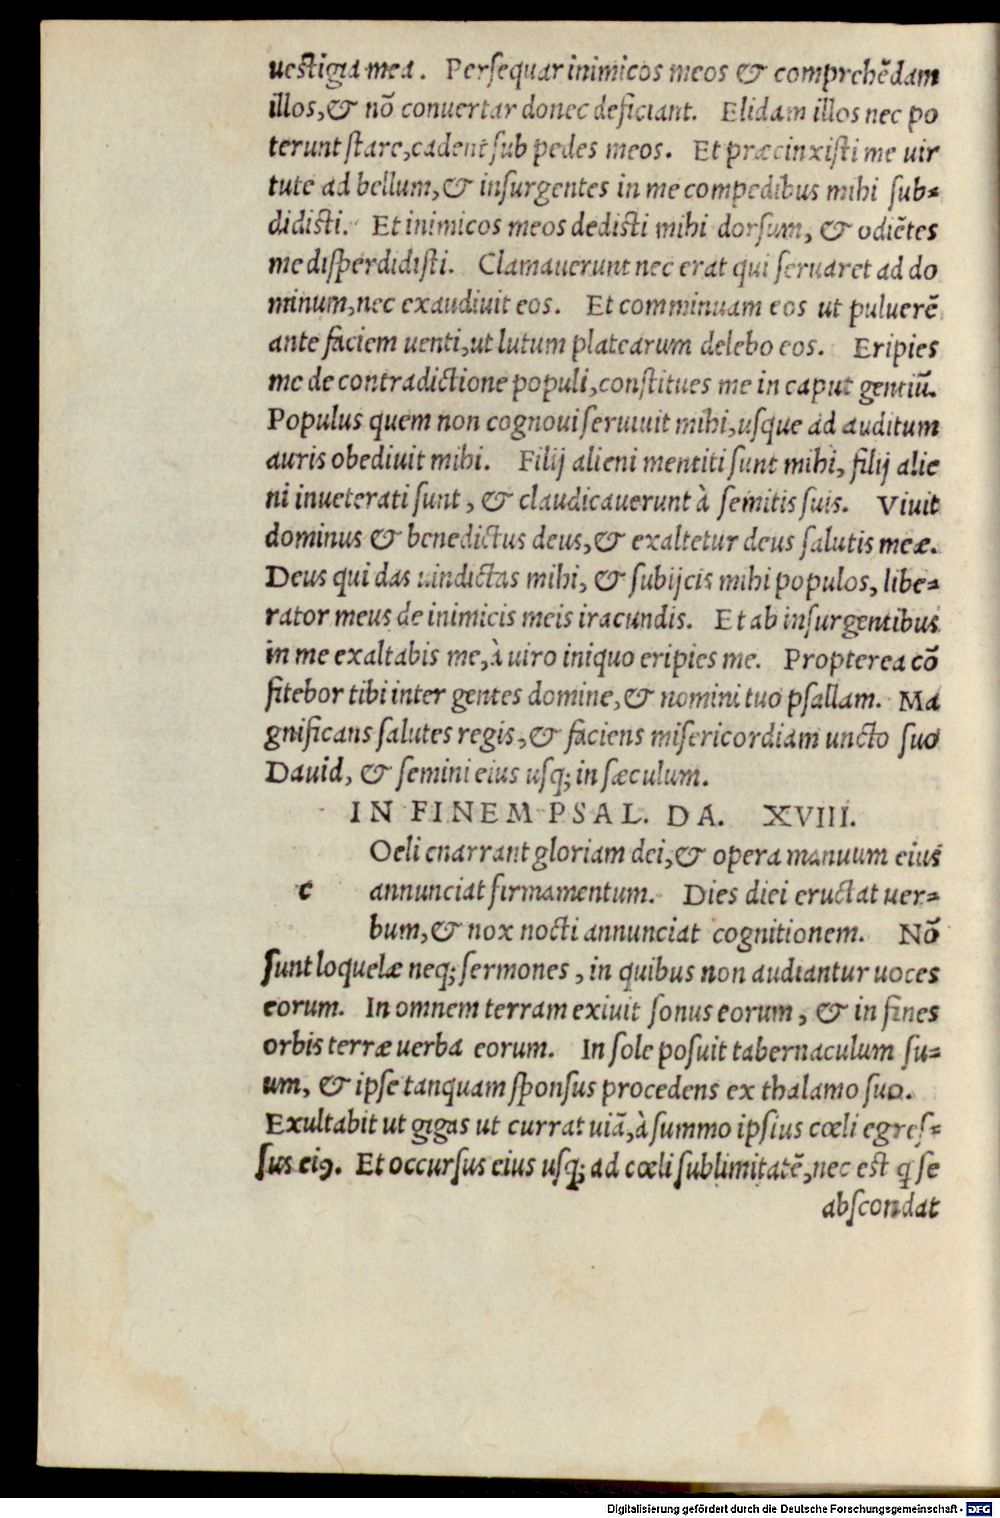 uestigia mea. Persequar inimicos meos & comprehēdam
illos,& nō conuertar donec deficiant. Elidam illos nec po
terunt stare,cadent sub pedes meos. Et præcinxisti me uir
tute ad bellum,& insurgentes in me compedibus mihi sub-
didisti. Et inimicos meos dedisti mihi dorsum, & odiētes
me disperdidisti. Clamauerunt nec erat qui seruaret ad do
minum,nec exaudiuit eos. Et comminuam eos ut puluerē
ante faciem uenti,ut lutum platearum delebo eos. Eripies
me de contradictione populi,constitues me in caput gentiū.
Populus quem non cognoui seruiuit mihi,usque ad auditum
auris obediuit mihi. Filij alieni mentiti sunt mihi, filij alie
ni inueterati sunt, & claudicauerunt à semitis suis. Viuit
dominus & benedictus deus,& exaltetur deus salutis meæ.
Deus qui das uindictas mihi, & subijcis mihi populos, libe-
rator meus de inimicis meis iracundis. Et ab insurgentibus
in me exaltabis me,à uiro iniquo eripies me. Propterea cō
fitebor tibi inter gentes domine,& nomini tuo psallam. Ma
gnificans salutes regis,& faciens misericordiam uncto suo
Dauid, & semini eius usq; in sæculum.
IN FINEM PSAL. DA. XVIII.
Oeli enarrant gloriam dei,& opera manuum eius
c annunciat firmamentum. Dies diei eructat uer-
bum,& nox nocti annunciat cognitionem. Nō
sunt loquelæ neq; sermones, in quibus non audiantur uoces
eorum. In omnem terram exiuit sonus eorum, & in fines
orbis terræ uerba eorum. In sole posuit tabernaculum su-
um, & ipse tanquam sponsus procedens ex thalamo suo.
Exultabit ut gigas ut currat uiā,à summo ipsius cœli egres-
sus eiꝰ. Et occursus eius usq; ad cœli sublimitatē,nec est ꝗ se
abscondat
Digitalisierung gefördert durch die Deutsche Forschungsgemeinschaft - DFG